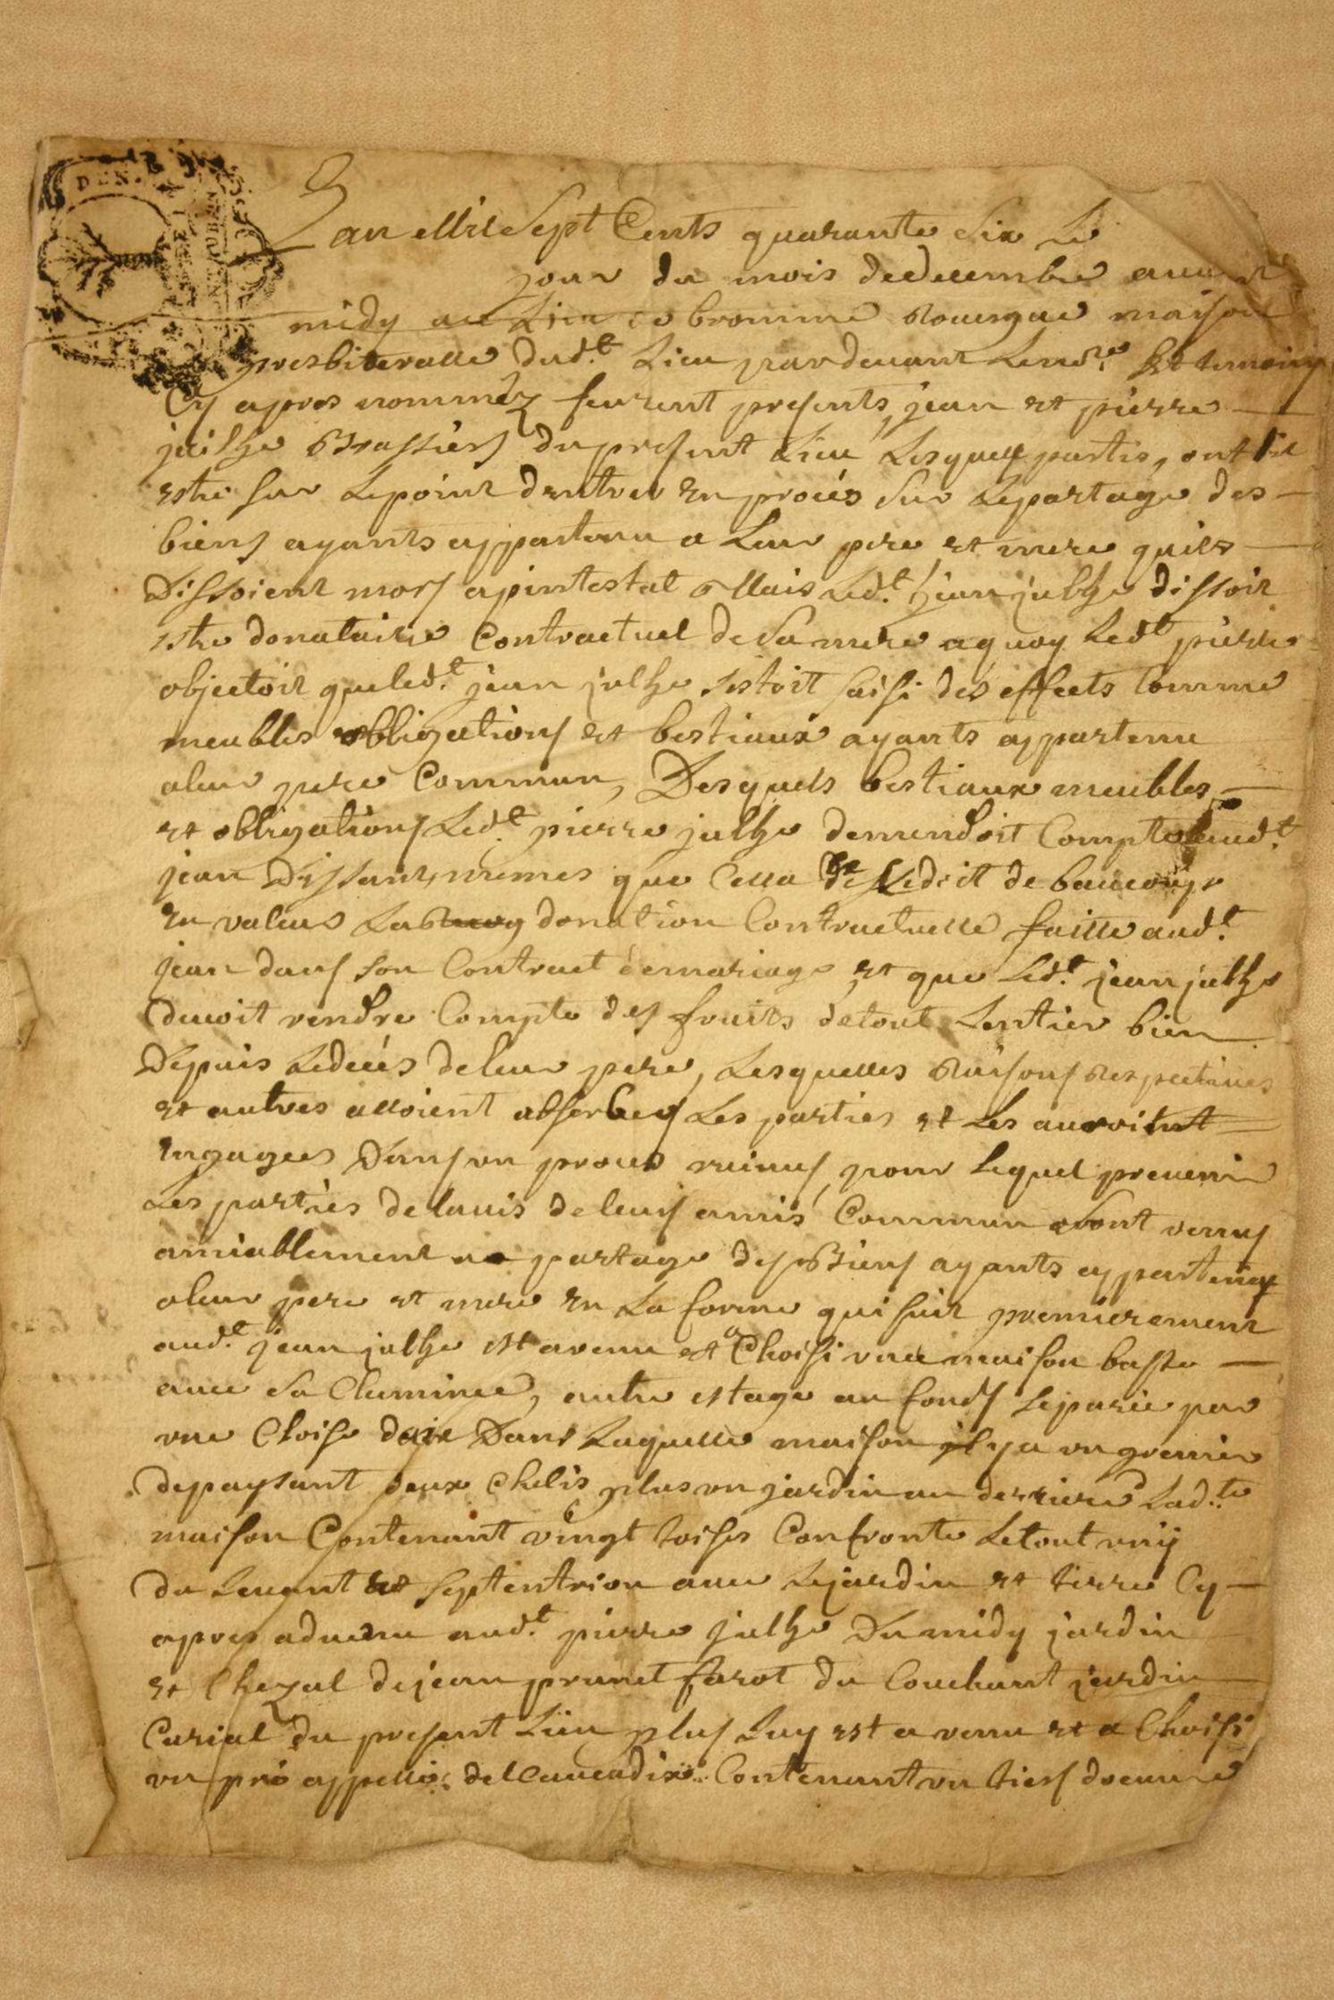 DEN.
Lan Mil Sept Cents quarante Six Le
jour du mois dedecembre avant
midy au Lieu de bromme Rouergue maison
presbiteralle dud.t Lieu pardevant Leno.re Et temoins
Cy apres nommez feurent presents, jean et pierre
julhe Brassiers du present Lieu Lesquels partis, ont
estre sur Lepoint dentrer En procés Sur Lepartage des
biens ayants appartenu a Leur pere et mere quils
Dissoient mors apintestat Mais Led.t jean julhe dissoit
estre donataire Contractuel de Sa mere a quoy Led.t pierre
objectoit queled.t jean julhe sestoit saisi des effects comme
meubles obligations et bestiaux ayants appartenu
aleur pere Commun, Desquels bestiaux meubles
et obligations Led.t pierre julhe demendoit Compte aud.t
jean Dissant, mêmes que Cella de beaucoup
En valeur donation Contractuelle faitte aud.t
jean dans son Contract demariage et que Led.t jean julhe
devoit rendre Compte des fruits detout Lentier bien
Depuis Ledecés deleur pere, Lesquelles Raisons Respectives
et autres alloient absorber Les parties et Les auroient
Engagees Dans un procés ruineux, pour Lequel prevenir
Les parties delavis deleurs amis Commun sont venus
amiablement au partage des Biens ayants appartenus
aleur pere et mere En La forme qui suit premierement
aud.t jean julhe est avenu et a Choisi une maison basse
avec Sa Cheminee, autre estage au fonds separée par
une Cloise Dans Laquelle maison il y a un grenier
depaysant deux Chelis plus un jardin au derriere Lad.te
maison Contenant vingt toises Confronte Letout uny
du Levant et septentrion avec Lejardin et terre Cy
apres advenu aud.t pierre julhe Du midy jardin
et Chezal dejean prunet farot du Couchant jardin
Curial du present Lieu plus Luy est a venu et a Choisi
un pré appellé Contenant un tiers doeuvre